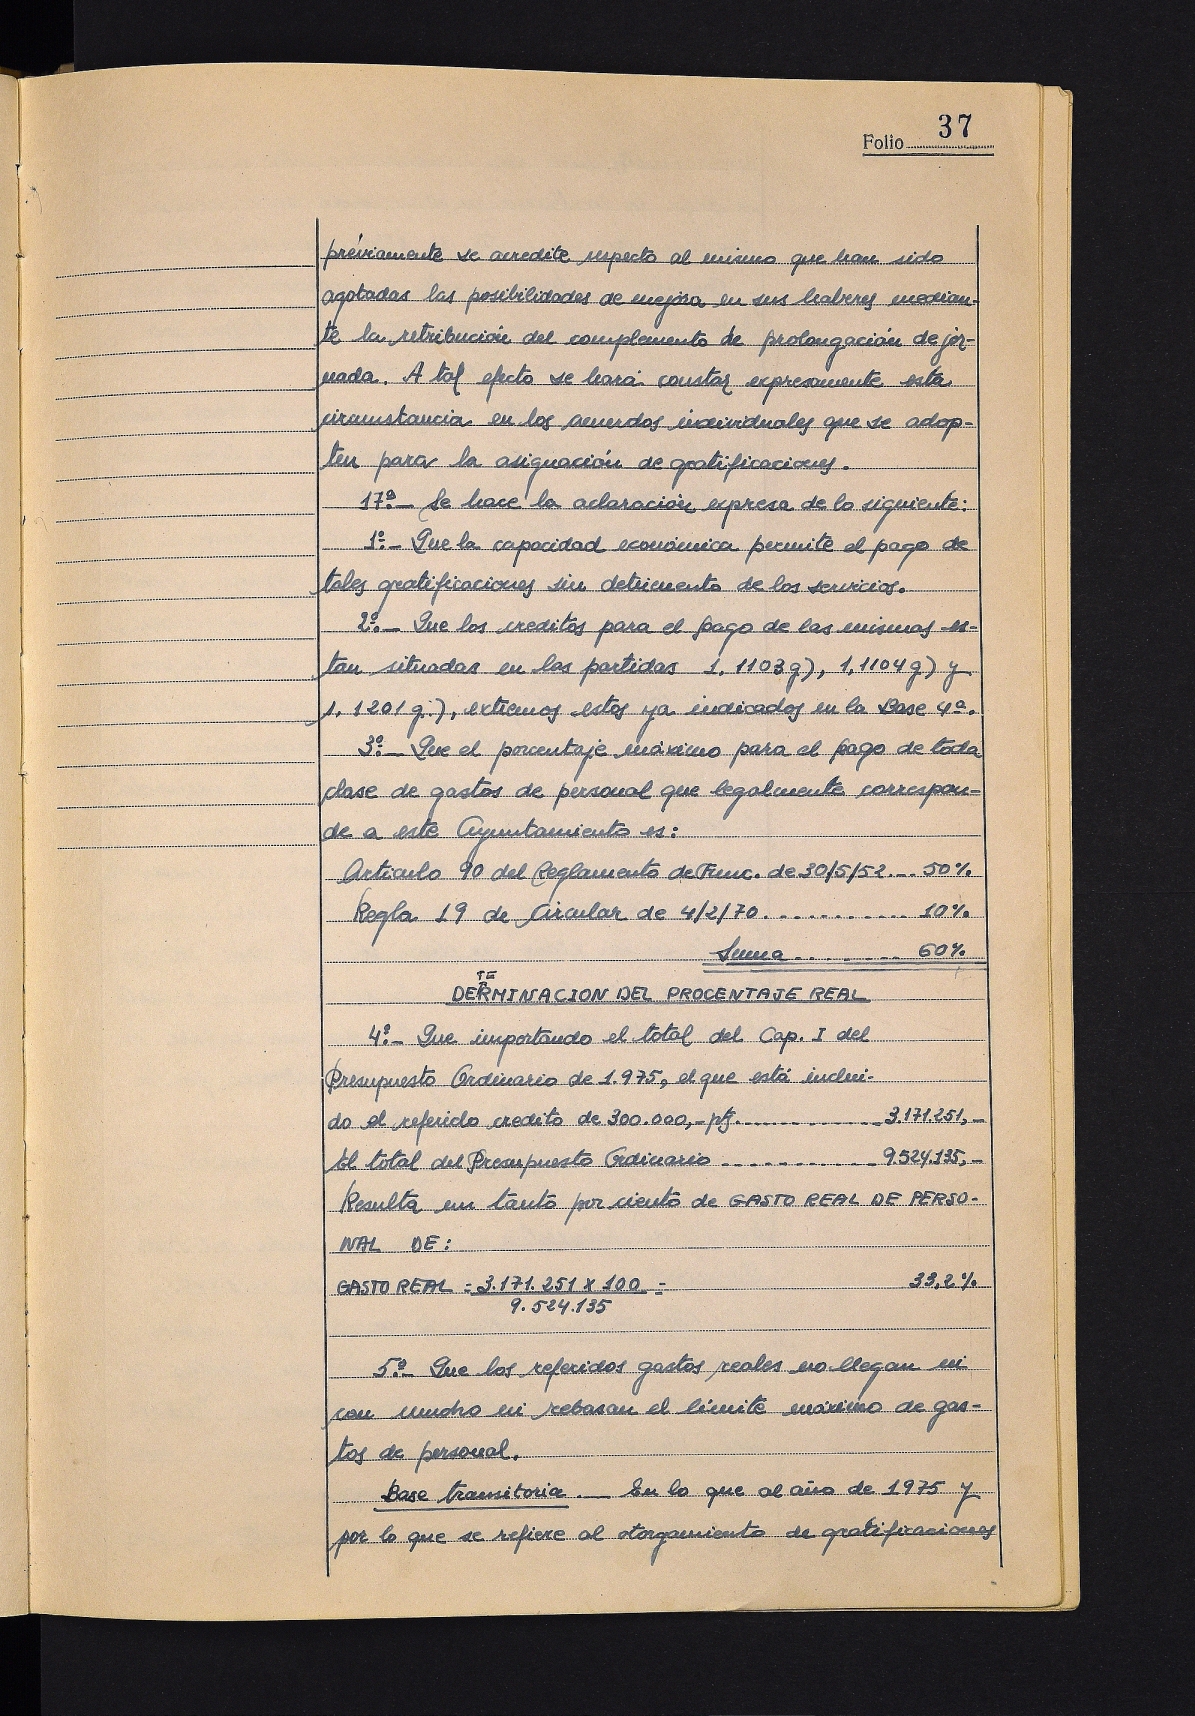 Folio 37
préviamente se acredite respecto al mismo que han sido
agotadas las posibilidades de mejora en sus haberes median-
te la retribución del complemento de prolongación de jor-
nada. A tal efecto se hará constar expresamente esta
circunstancia en los acuerdos individuales que se adop-
ten para la asignación de gratificaciones.
17ª.- Se hace la aclaración expresa de lo siguiente:
1º.- Que la capacidad económica permite el pago de
tales gratificaciones sin detrimento de los servicios.
2º.- Que los creditos para el pago de las mismas es-
tan situadas en las partidas 1.1103 g), 1.1104 g) y
1.1201 g.), extremos estos ya indicados en la Base 4ª.
3º.- Que el porcentaje máximo para el pago de toda
clase de gastos de personal que legalmente correspon-
de a este Ayuntamiento es:
Articulo 90 del Reglamento de Func. de 30/5/52... 50%
Regla 19 de Circular de 4/2/70............ 10%
Suma......... 60%
TE
DERMINACION DEL PROCENTAJE REAL
4º.- Que importando el total del Cap. I del
Presupuesto Ordinario de 1.975, el que está inclui-
do el referido credito de 300.000,- pts............... 3.171.251,-
El total del Presupuesto Ordinario ............ 9.524.135,-
Resulta un tanto por ciento de GASTO REAL DE PERSO-
NAL DE:
GASTO REAL = 3.171.251 x 100 = 33,2%
9.524.135
5º.- Que los referidos gastos reales no llegan ni
con mucho ni rebasan el límite máximo de gas-
tos de personal.
Base transitoria.- En lo que al año de 1975 y
por lo que se refiere al otorgamiento de gratificaciones